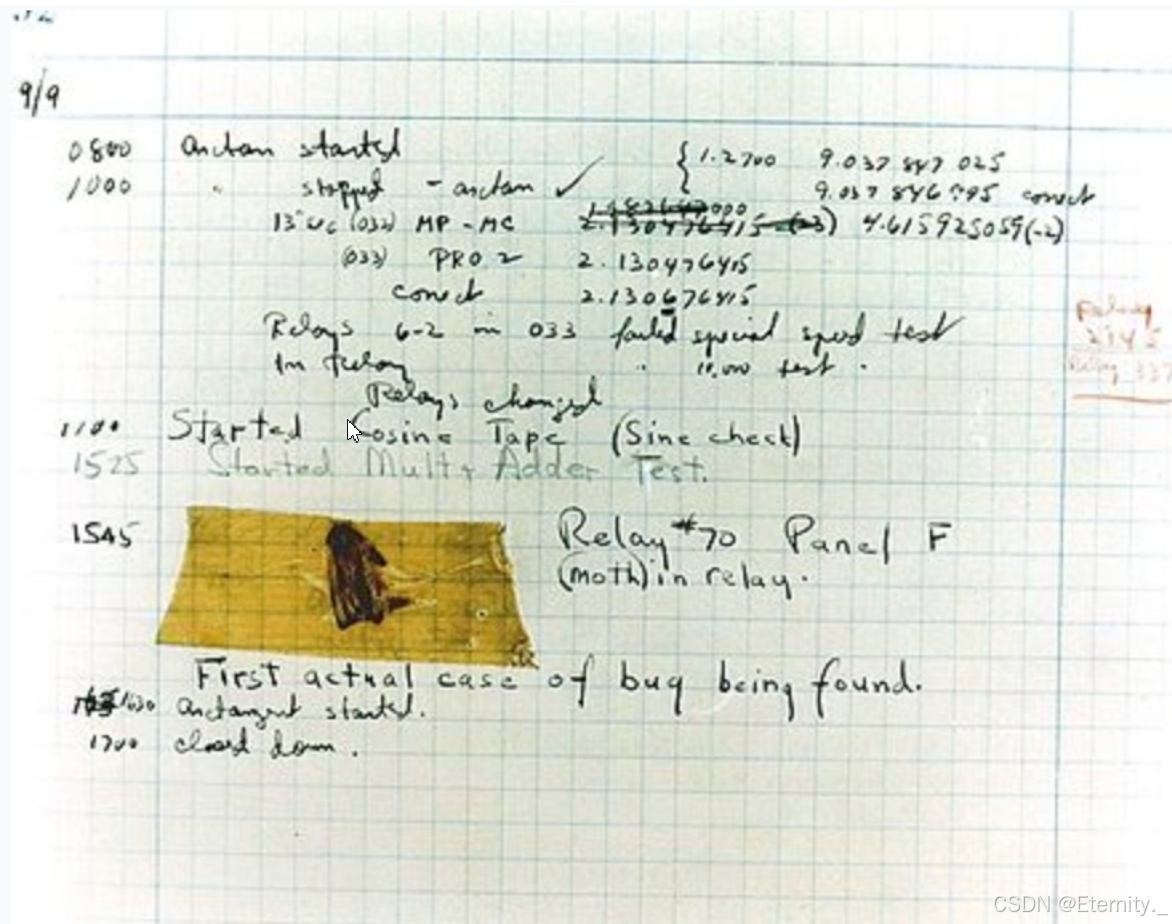 9/9
0800 Antan started { 1.2700 9.037 847 025
1000 " stopped - antan ✓ 9.037 846 995 correct
13"uc (032) MP - MC 2.130476415 (-3) 4.615925059(-2)
(033) PRO 2 2.130476415
correct 2.130676415
Relays 6-2 in 033 failed special speed test
In Relay " 10.000 test .
Relay
2145
Relay 337
Relays changed
1100 Started Cosine Tape (Sine check)
1525 Started Mult + Adder Test.
1545 Relay #70 Panel F
(moth) in relay.
First actual case of bug being found.
1630 Arctangent started.
1700 closed down.
CSDN @Eternity._